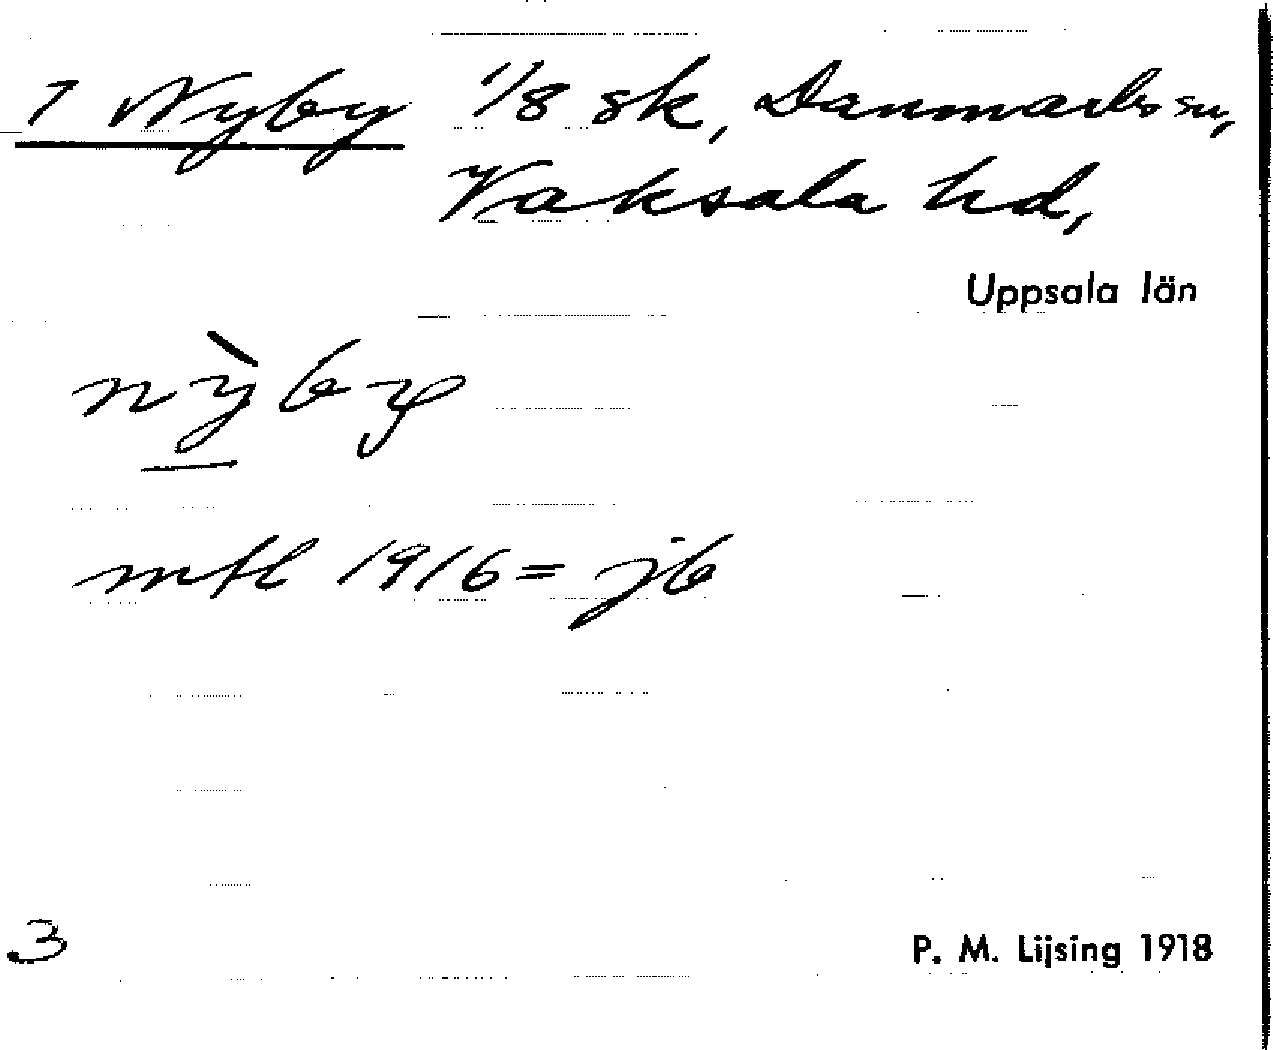 7 Nyby 1/8 sk, Danmarks sn,
Vaksala hd,
Uppsala län
nỳby
mtl 1916 = jb
3
P. M. Lijsing 1918